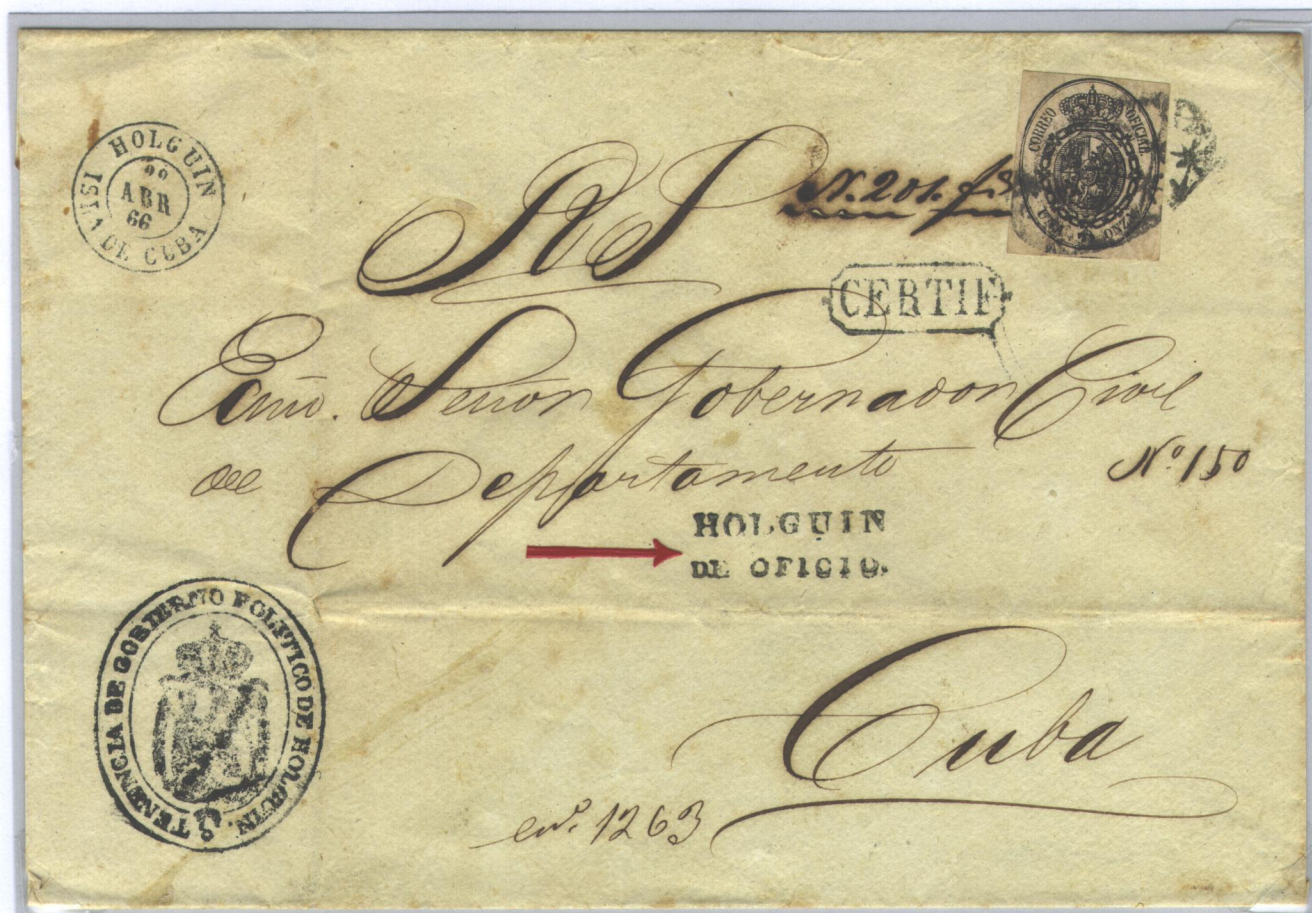 HOLGUIN
ABR
66
ISLA DE CUBA
CORREO OFICIAL
UNA ONZA
N. 201.
CERTIF
Exmo. Señor Gobernador Civil
del Departamento
Nº 150
HOLGUIN
DE OFICIO.
TENENCIA DE GOBIERNO POLITICO DE HOLGUIN.
Cuba
1263